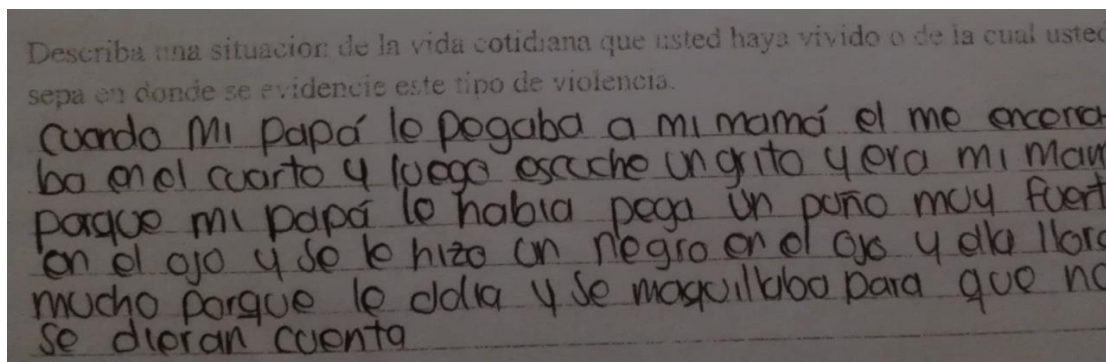 Describa una situación de la vida cotidiana que usted haya vivido o de la cual usted
sepa en donde se evidencie este tipo de violencia.
cuando Mi papá le pegaba a mi mamá el me encera
ba en el cuarto y luego escuche un grito y era mi Mam
porque mi papá le habia pega un puño muy fuert
en el ojo y se le hizo un negro en el ojo y ella lloro
mucho porque le dolia y se maquillaba para que no
se dieran cuenta